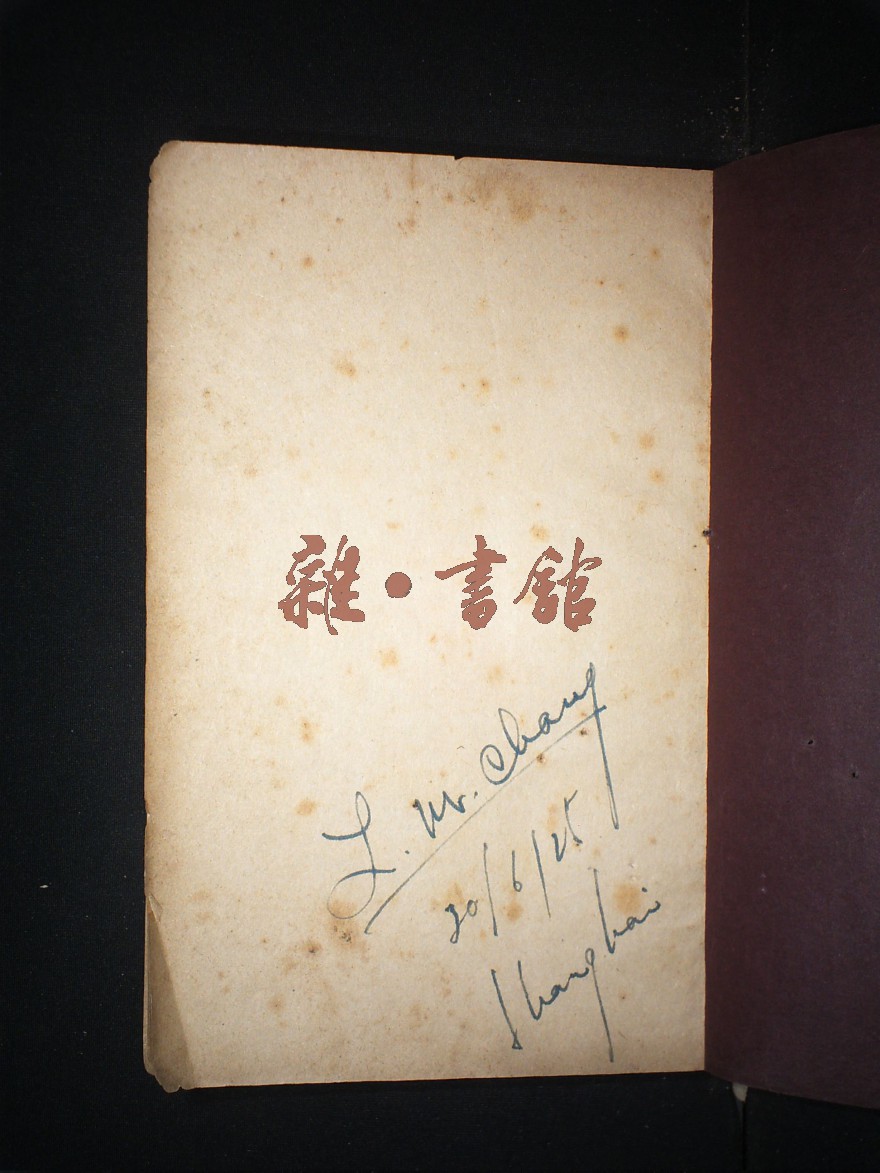 雜·書館
L. W. Chang
30/6/25
Shanghai